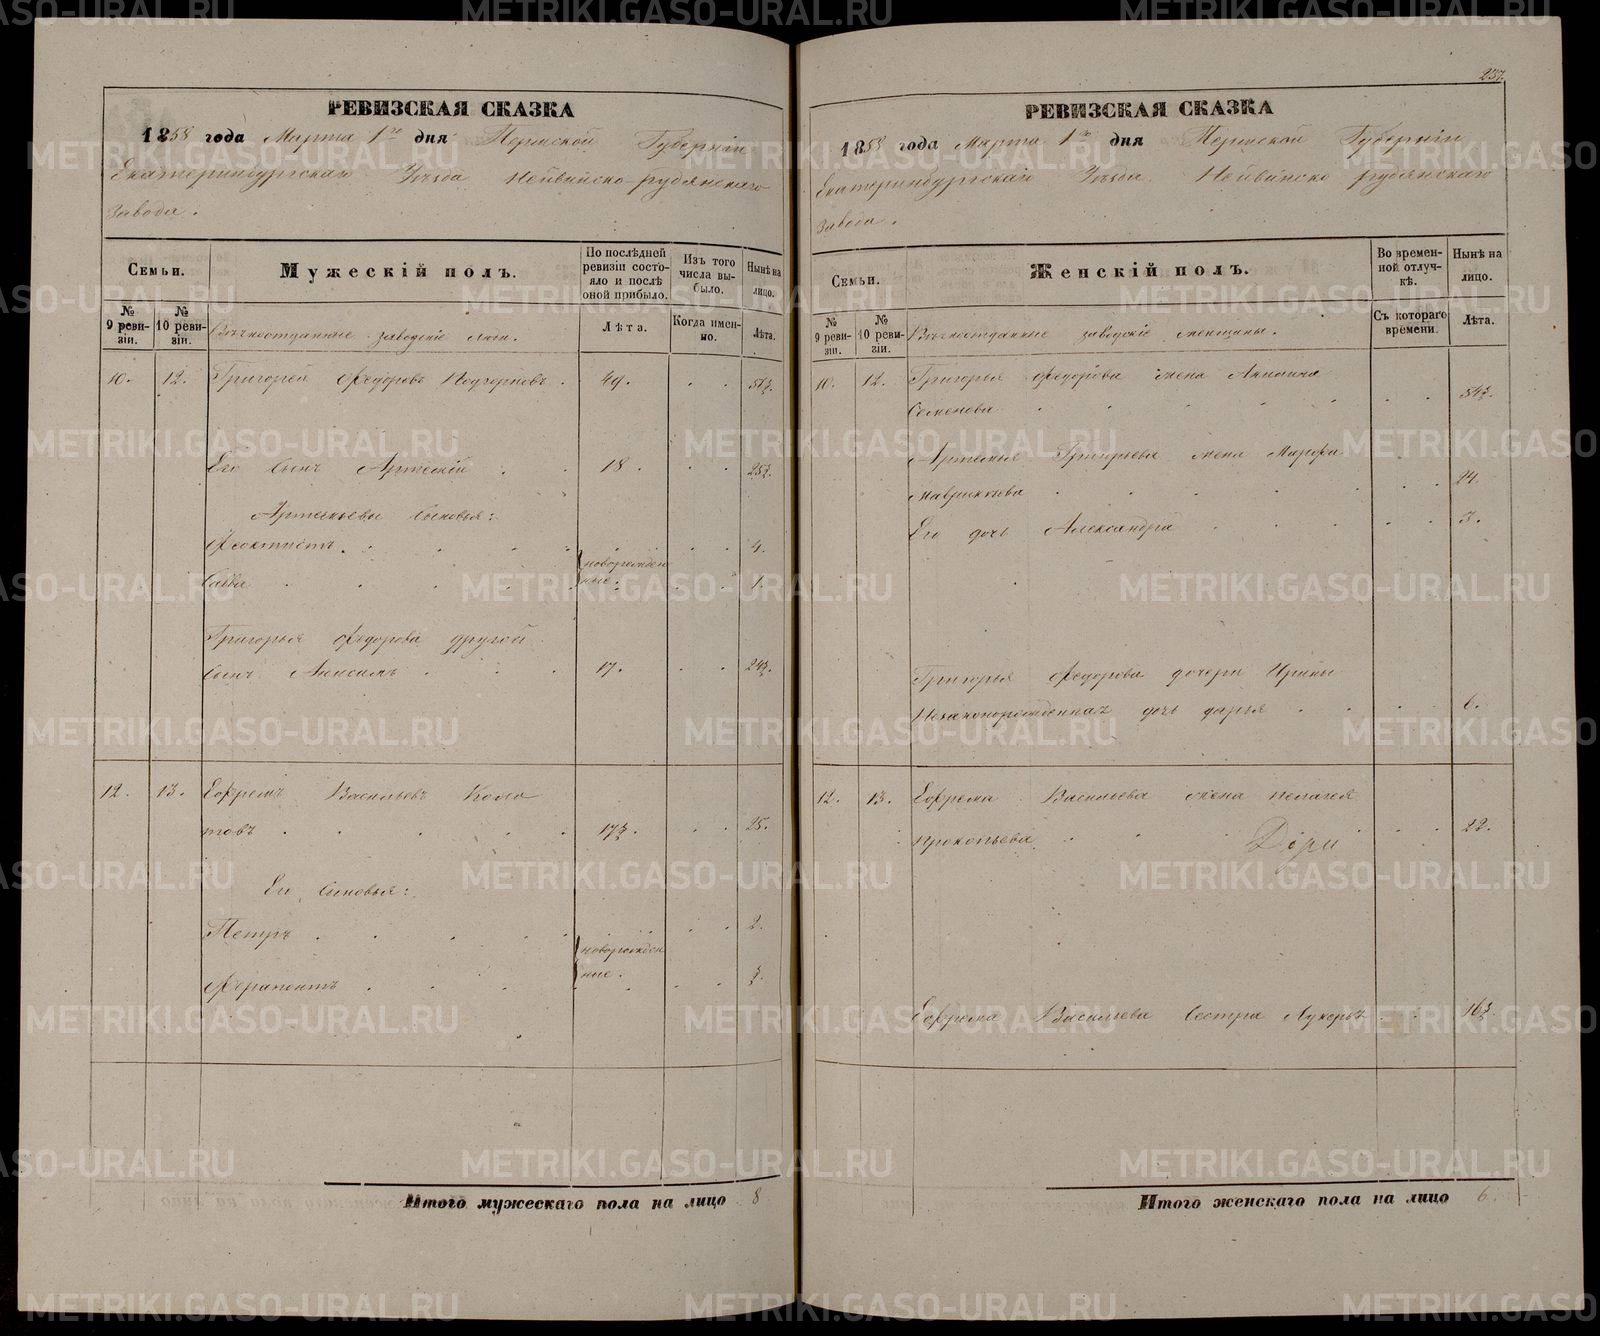 РЕВИЗСКАЯ СКАЗКА
1858 года Марта 1го дня Пермской Губерніи
Екатеринбургскаго Уѣзда Нейвинско-рудянскаго
завода.
Семьи.
Мужескій полъ.
По послѣдней ревизіи состояло и послѣ оной прибыло.
Изъ того числа выбыло.
Нынѣ на лицо.
№ 9 ревизіи.
№ 10 ревизіи.
Вѣчноотданные заводскіе люди.
Лѣта.
Когда именно.
Лѣта.
10. 12. Григорей Федоровъ 49. 57½.
Его сынъ Артемій 18. 25½.
Артемьевы сыновья:
Феоктистъ. 4.
новорожденные.
Савва 1.
Григорья Федорова другой
сынъ Анисимъ 17. 24½.
12. 13. Ефремъ Васильевъ
товъ 17½. 25.
Его сыновья:
Петръ 2.
новорожденные.
Ферапонтъ ½.
Итого мужескаго пола на лицо 8
257.
РЕВИЗСКАЯ СКАЗКА
1858 года Марта 1го дня Пермской Губерніи
Екатеринбургскаго Уѣзда Нейвинско рудянскаго
завода.
Семьи.
Женскій полъ.
Во временной отлучкѣ.
Нынѣ на лицо.
№ 9 ревизіи.
№ 10 ревизіи.
Вѣчноотданные заводскіе женщины.
Съ котораго времени.
Лѣта.
10. 12. Григорья Федорова жена
Семенова 54½.
Артемья Григорьева жена Марфа
24.
Его дочь Александра 3.
Григорья Федорова дочери Ирины
Незаконорожденная дочь Дарья 6.
12. 13. Ефрема Васильева жена Пелагея
Прокопьева 22.
Ефрема Васильева сестра Лукерья 16½.
Итого женскаго пола на лицо 6.
METRIKI.GASO-URAL.RU